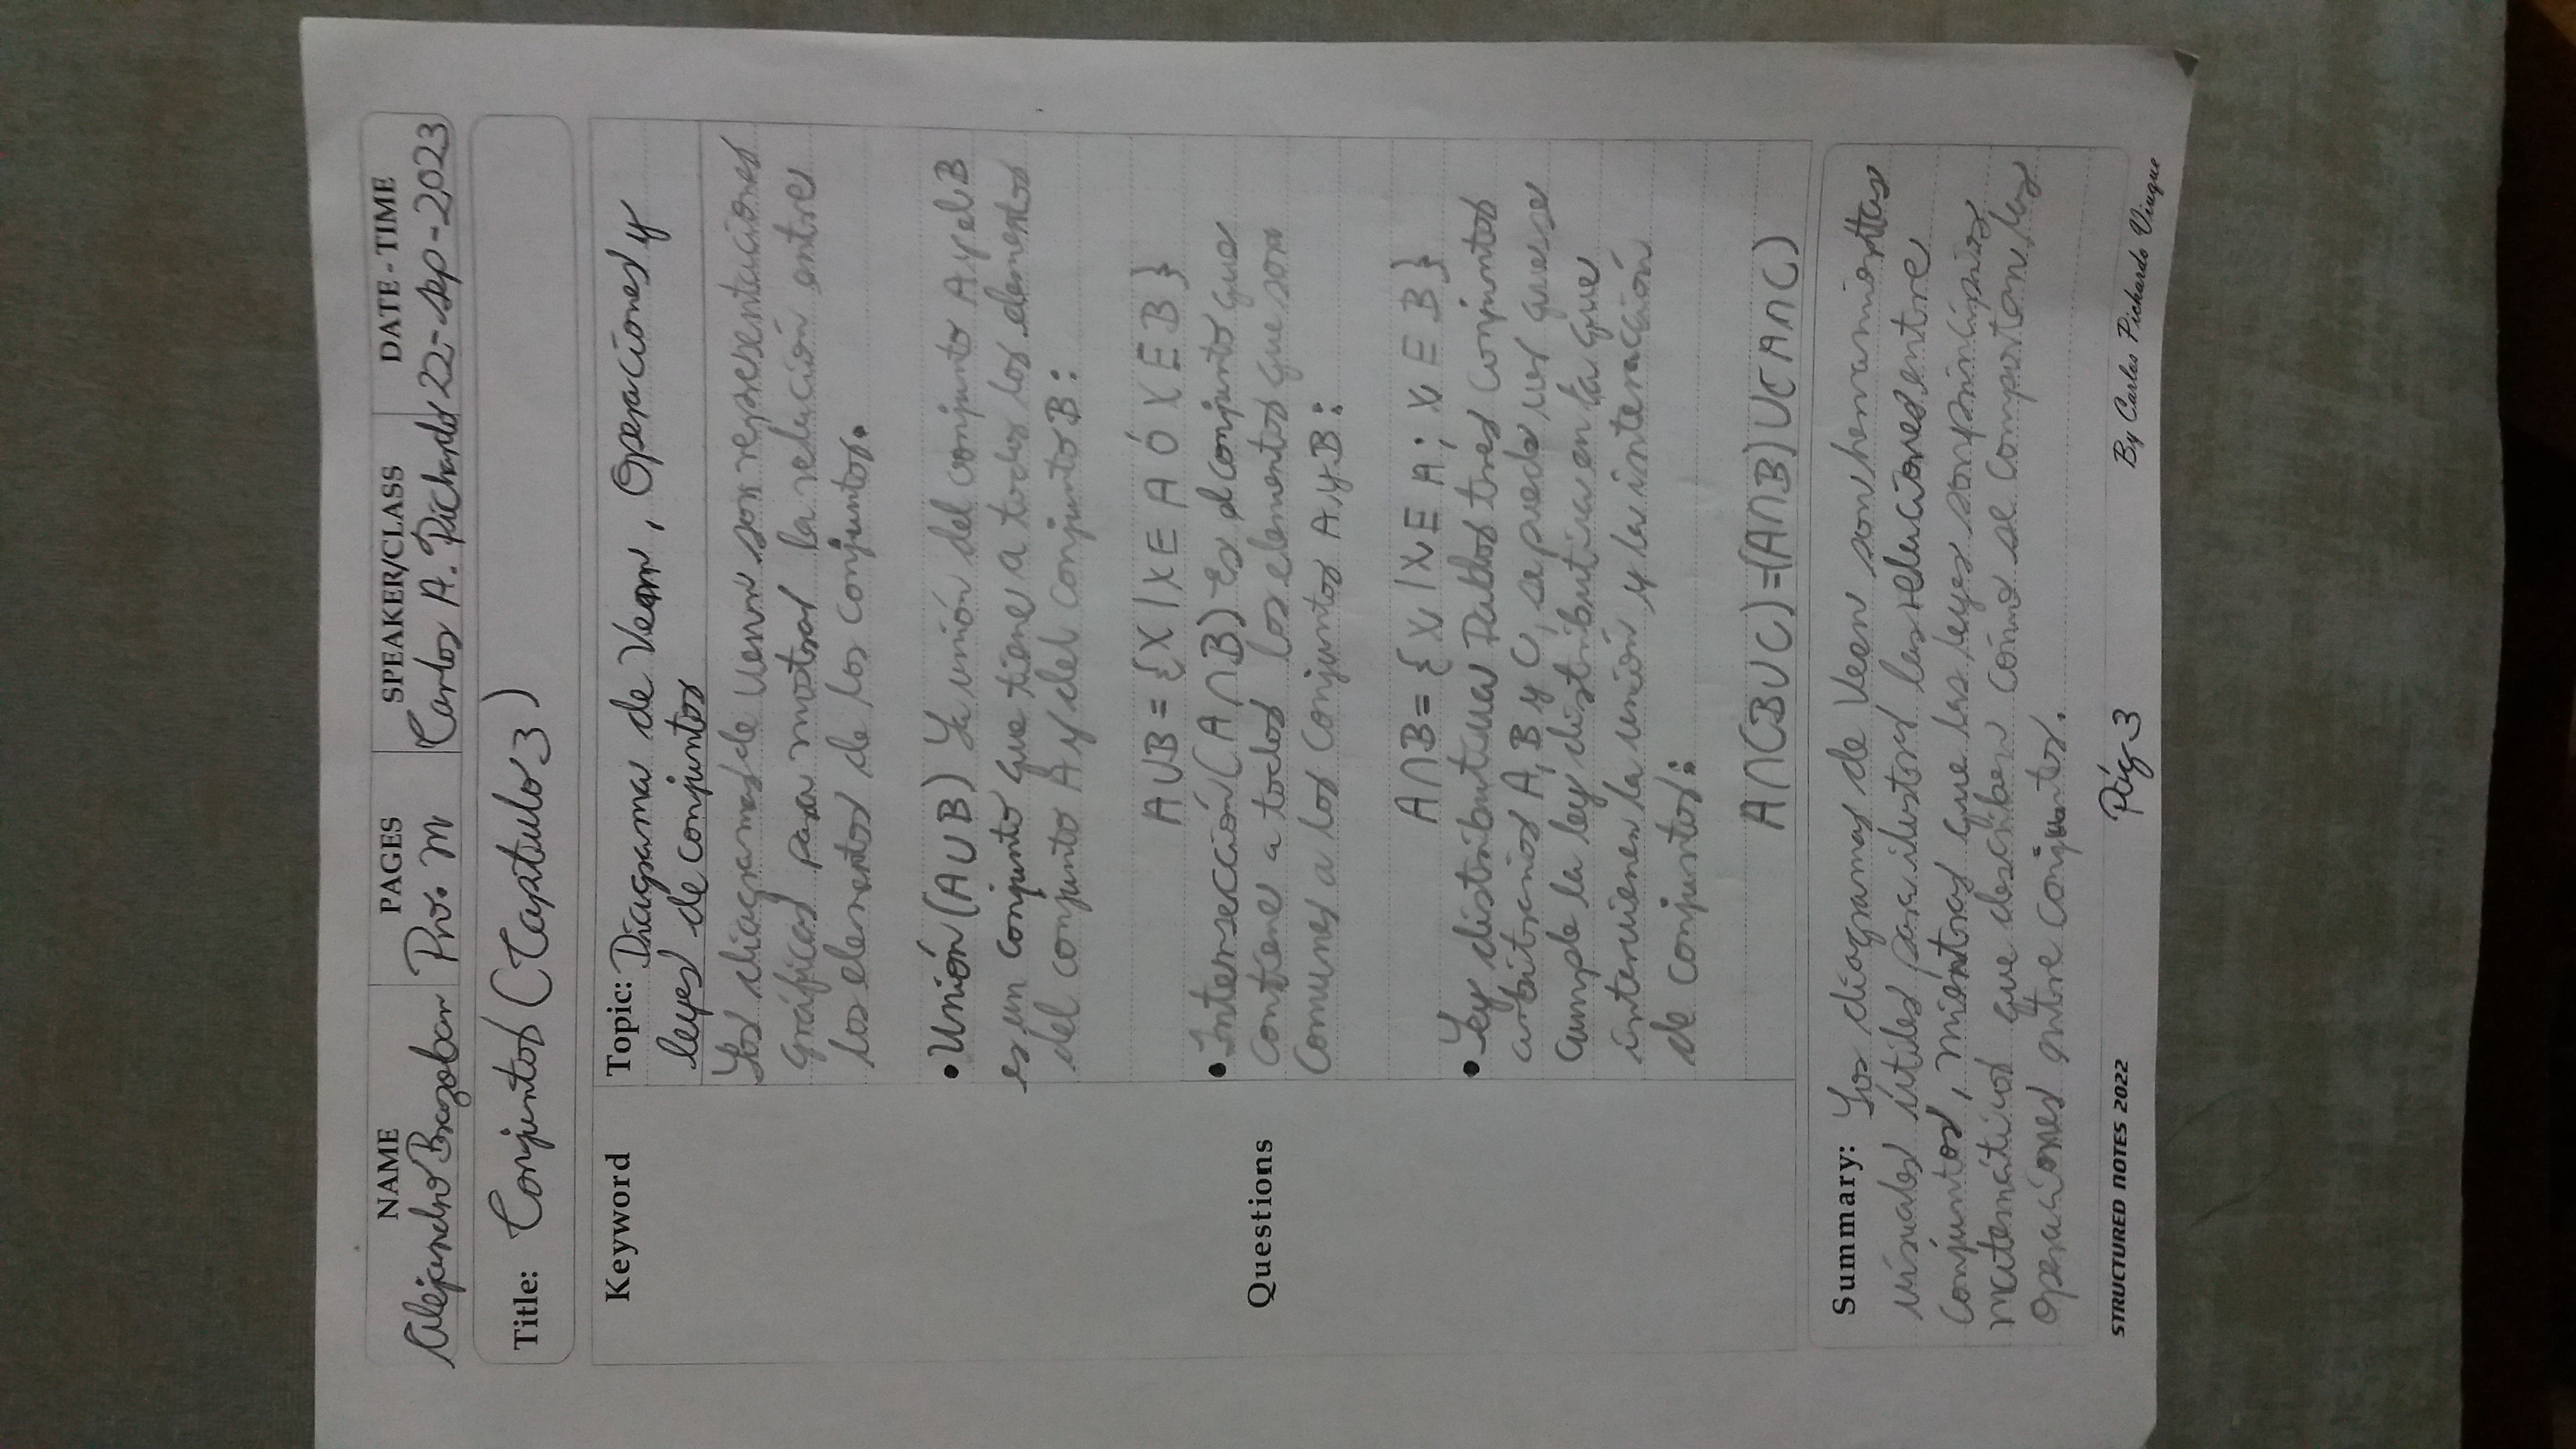 NAME PAGES SPEAKER/CLASS DATE-TIME
Alejandro Brazoban Pro. M Carlos A. Pichardo 22-sep-2023
Title: Conjuntos (Capitulo 3)
Keyword
Topic: Diagrama de Venn, Operaciones y
leyes de conjuntos
Los diagramas de venn son representaciones
gráficas para mostrar la relación entre
los elementos de los conjuntos.
• Unión (A∪B) La unión del conjunto A y el B
es un conjunto que tiene a todos los elementos
del conjunto A y del conjunto B:
A∪B = {X | X E A Ó X E B}
• Intersección (A∩B) Es el conjunto que
Questions
contiene a todos los elementos que son
comunes a los conjuntos A y B:
A∩B = {X | X E A; X E B}
• Ley distributiva Dados tres conjuntos
arbitrarios A, B y C, se puede ver que se
cumple la ley distributiva en la que
intervienen la unión y la interacción
de conjuntos:
A∩(B∪C)=(A∩B)∪(A∩C)
Summary: Los diagramas de Veen son herramientas
visuales útiles para ilustrar las relaciones entre
conjuntos, mientras que las leyes son principios
matemáticos que describen cómo se comportan las
operaciones entre conjuntos.
STRUCTURED NOTES 2022 Pág 3 By Carlos Pichardo Viuque